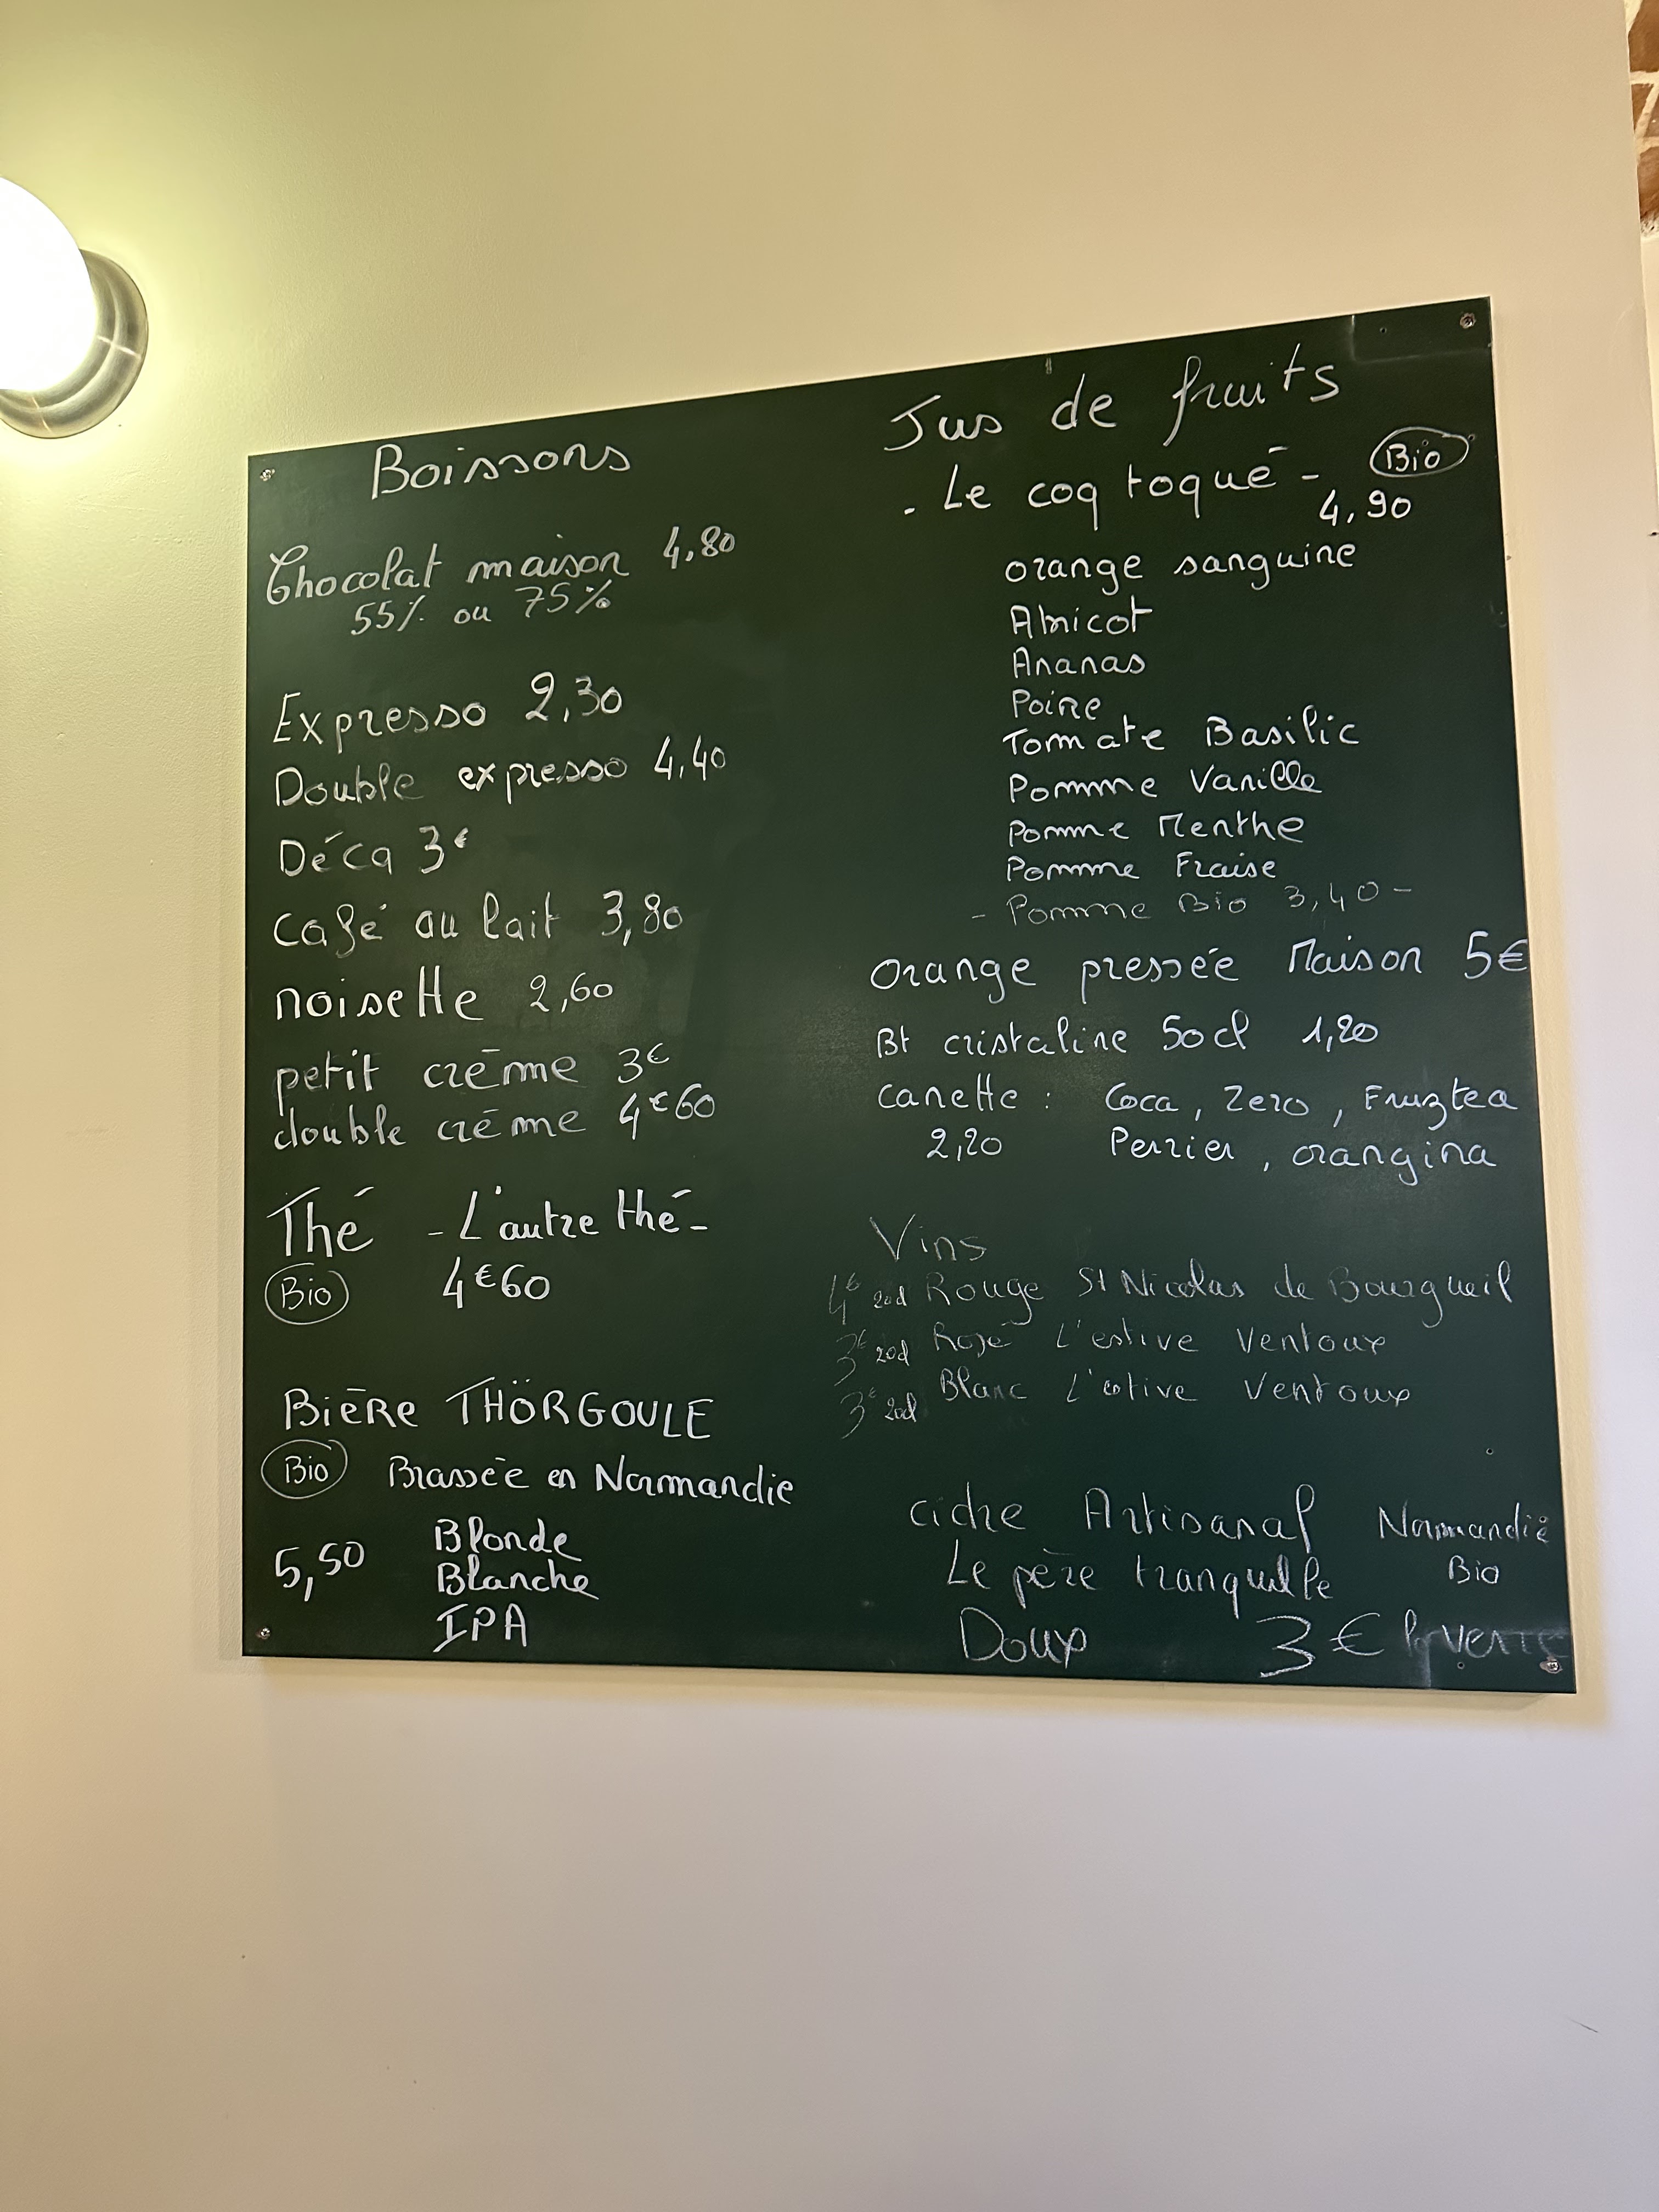 Boissons
Chocolat maison 4.80
55% ou 75%
Expresso 2,30
Double expresso 4.40
Déca 3€
Café au lait 3,80
noisette 2,60
petit crème 3€
double crème 4€60
Thé - L'autre thé -
Bio 4€60
Bière THÖRGOULE
Bio Brassée en Normandie
Blonde
5,50 Blanche
IPA
Jus de fruits
- Le coq toqué - Bio
4,90
orange sanguine
Abricot
Ananas
Poire
Tomate Basilic
Pomme Vanille
Pomme Menthe
Pomme Fraise
- Pomme Bio 3,40 -
Orange pressée Maison 5€
Bt cristaline 50cl 1,20
Canette : Coca, Zero, Fuztea
2,20 Perrier, orangina
Vins
4€ 20cl Rouge St Nicolas de Bourgueil
3€ 20cl Rosé L'estive Ventoux
3€ 20cl Blanc L'estive Ventoux
Cidre Artisanal Normandie
Le père tranquille Bio
Doux 3€ le verre